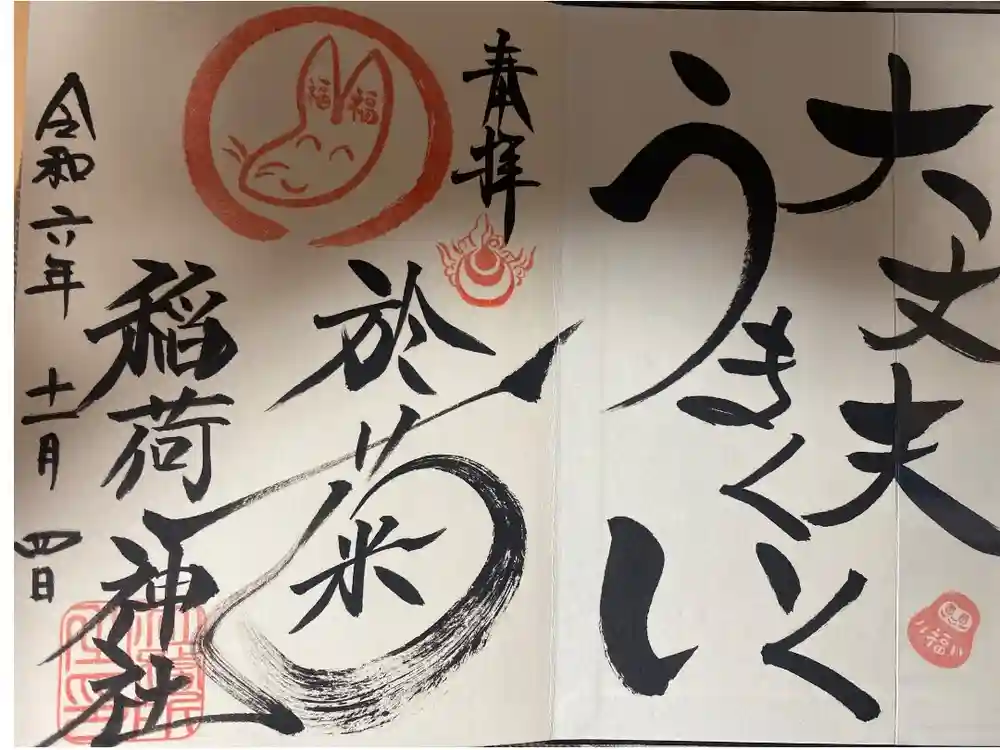 大丈夫
うまくいく
福
奉拝
福福
於菊
稲荷神社
令和六年十一月四日